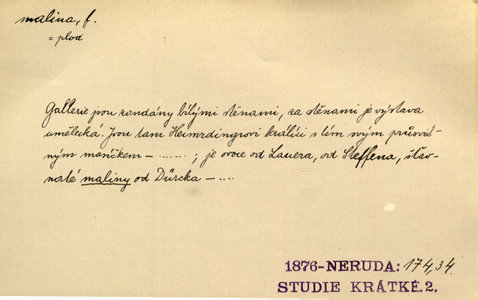 malina, f.
= plod
Gallerie jsou zandány bílými stěnami, za stěnami je výstava
umělecká. Jsou tam Heimrdingrovi králíci s tím svým průsvit-
ným masíčkem – ......; je ovoce od Lauera, od Steffena, šťav-
naté maliny od Dürcka – ....
1876-NERUDA: 174,34.
STUDIE KRÁTKÉ.2.